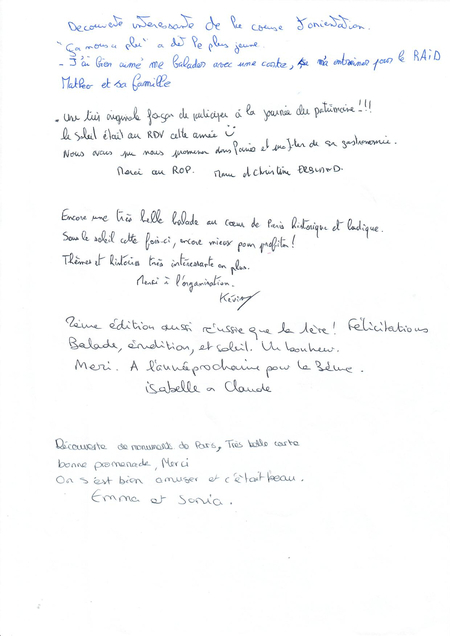 Decouverte interessante de la course d'orientation.
"Ça nous a plu" a dit le plus jeune.
- J'ai bien aimé me balader avec une carte, ça m'a entrainer pour le RAID
Matheo et sa famille
- Une très originale façon de participer à la journée du patrimoine !!!
le Soleil était au RDV cette année
Nous avons pu nous promener dans Paris et profiter de sa gastronomie.
Merci au ROP. et Christine
Encore une très belle balade au cœur de Paris historique et ludique.
Sous le soleil cette fois-ci, encore mieux pour profiter !
Thèmes et histoires très intéressante en plus.
Merci à l'organisation.
Kévin
2ème édition aussi réussie que la 1ère ! Félicitations
Balade, érudition, et soleil. Un bonheur.
Merci. A l'année prochaine pour la 3ème.
isabelle a Claude
Découverte de monuments de Paris, Très belle carte
bonne promenade, Merci
On s'est bien amuser et c'était beau.
Emma et Sonia.